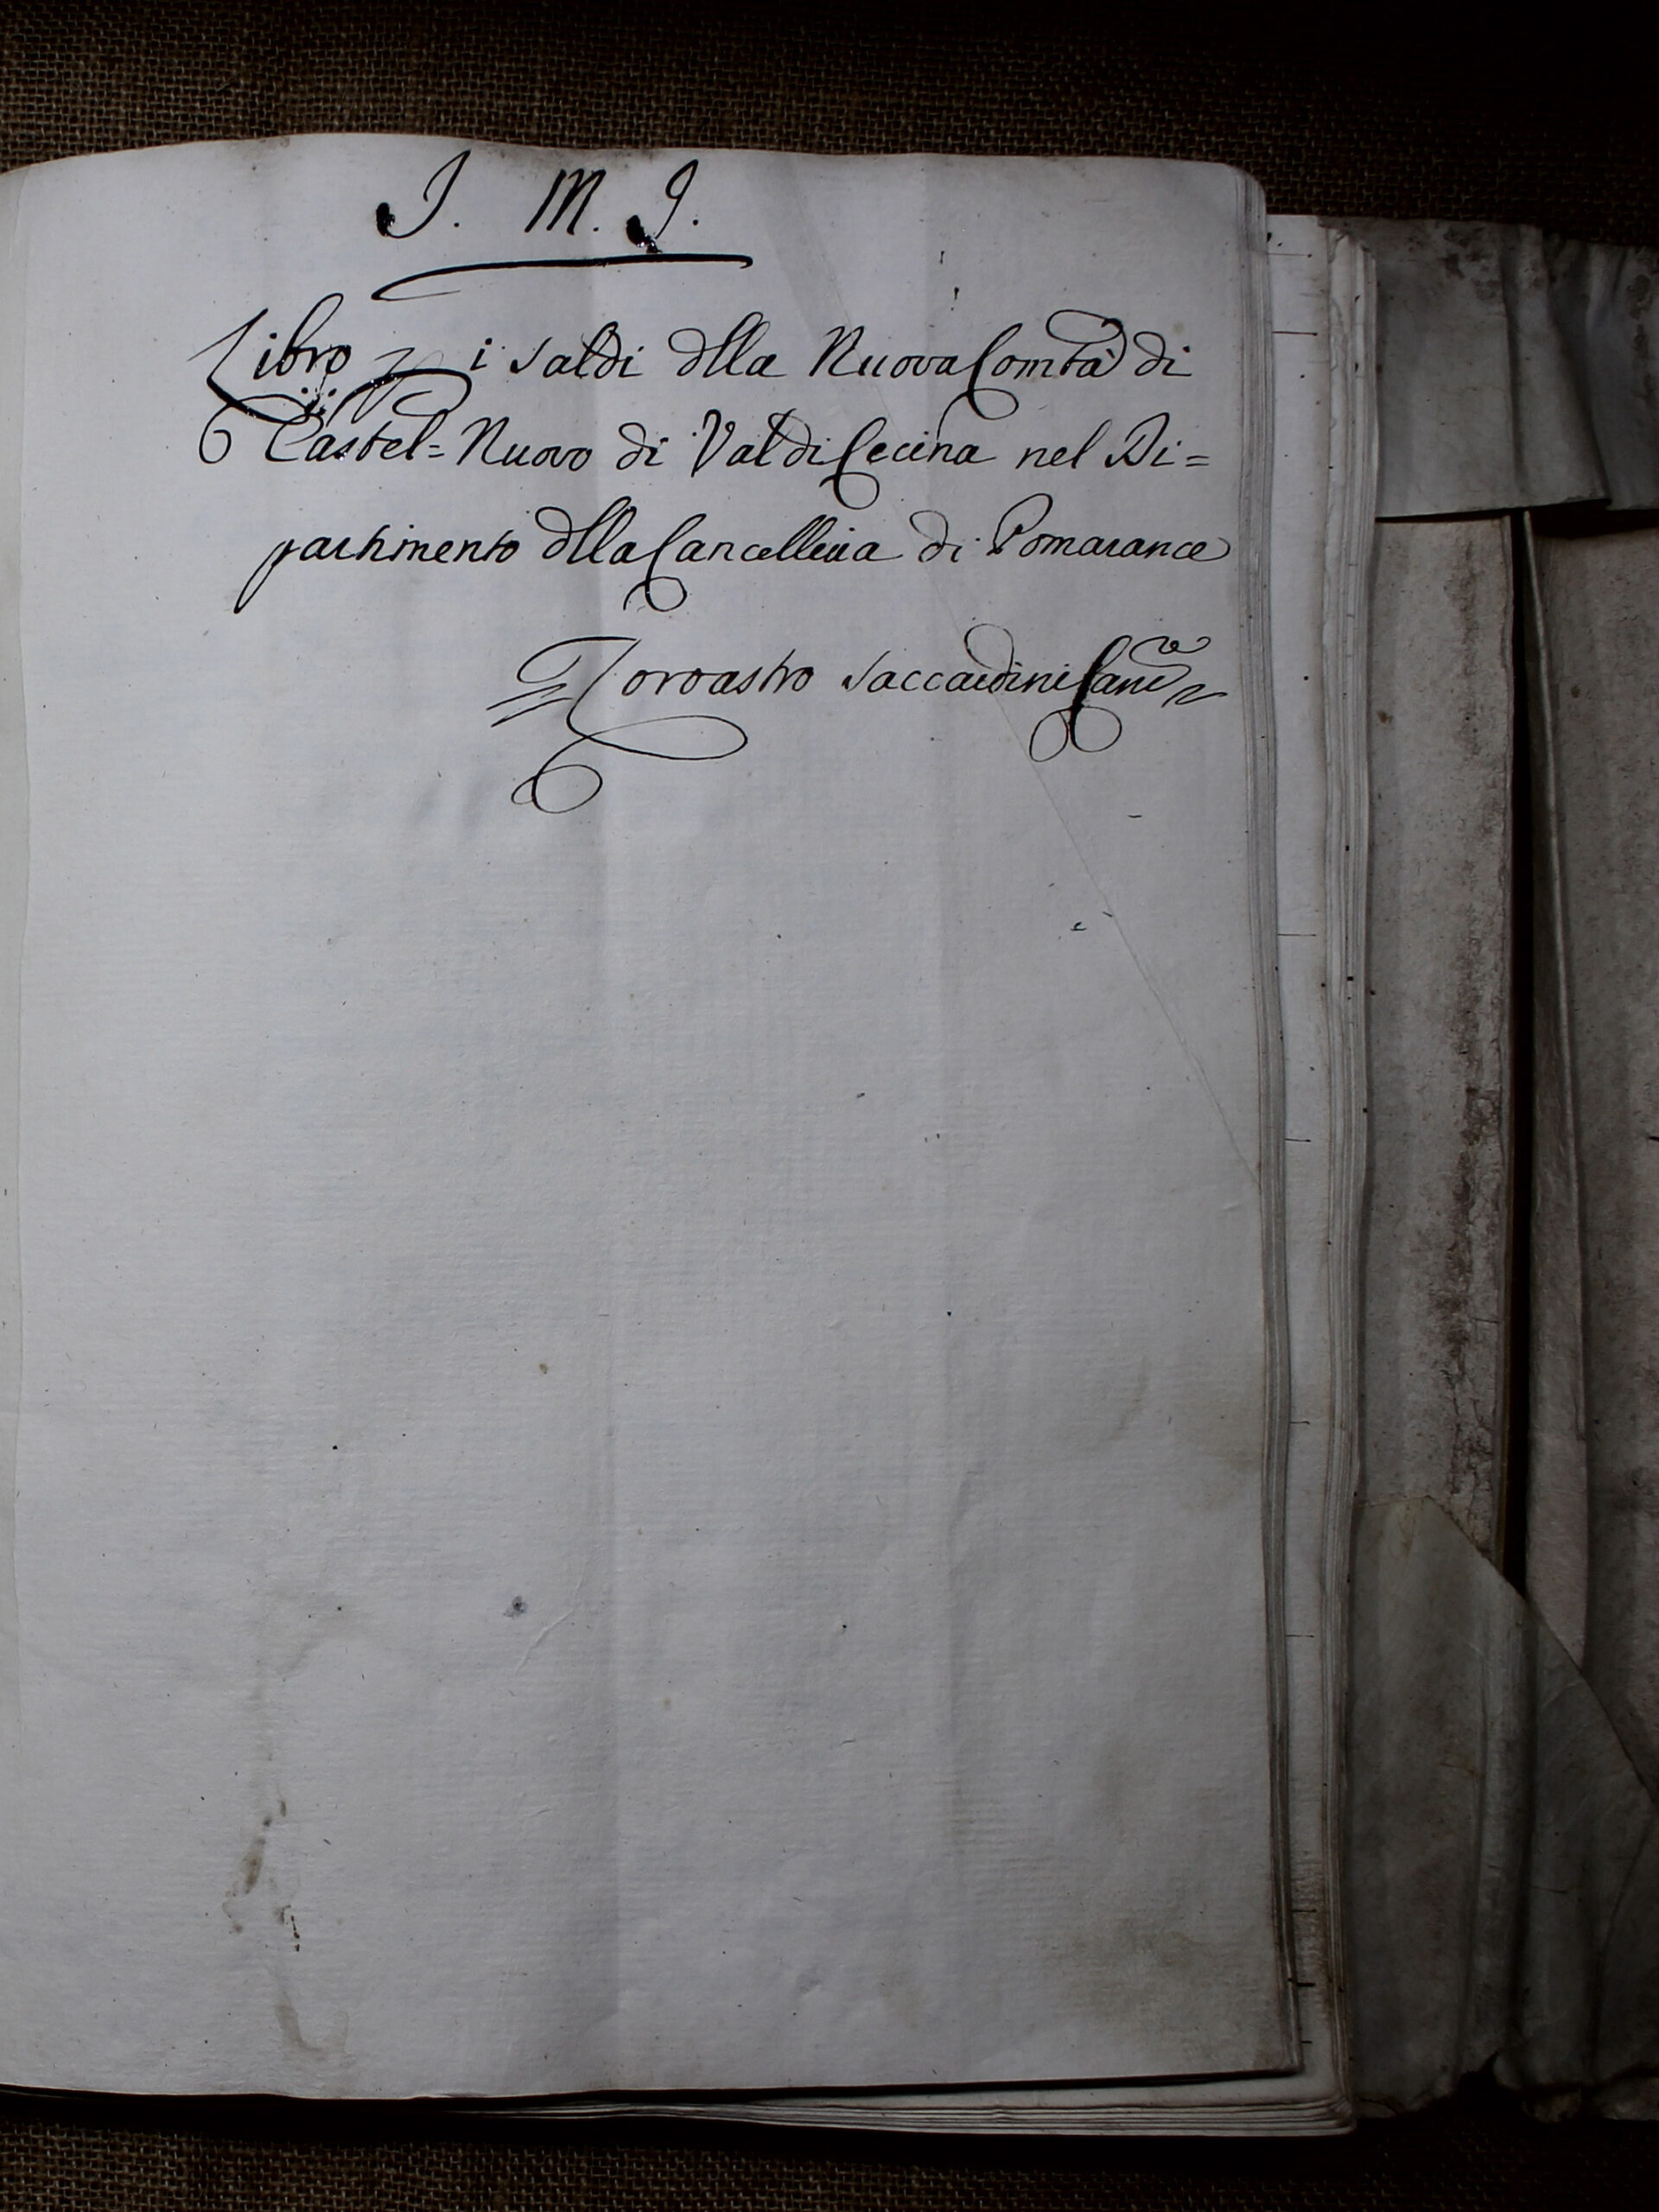 J. M. J.
Libro p i saldi dlla Nuova Comtà di
Castel=Nuovo di Val di Cecina nel Di=
partimento dlla Cancelleria di Pomarance
Zoroastro Saccardini Canc.re